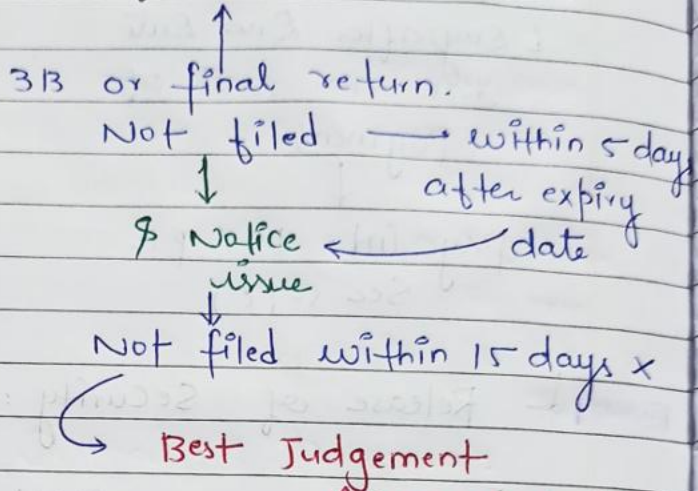 3B or final return.
Not filed → within 5 days
after expiry
$ Notice ← date
issue
Not filed within 15 days x
Best Judgement